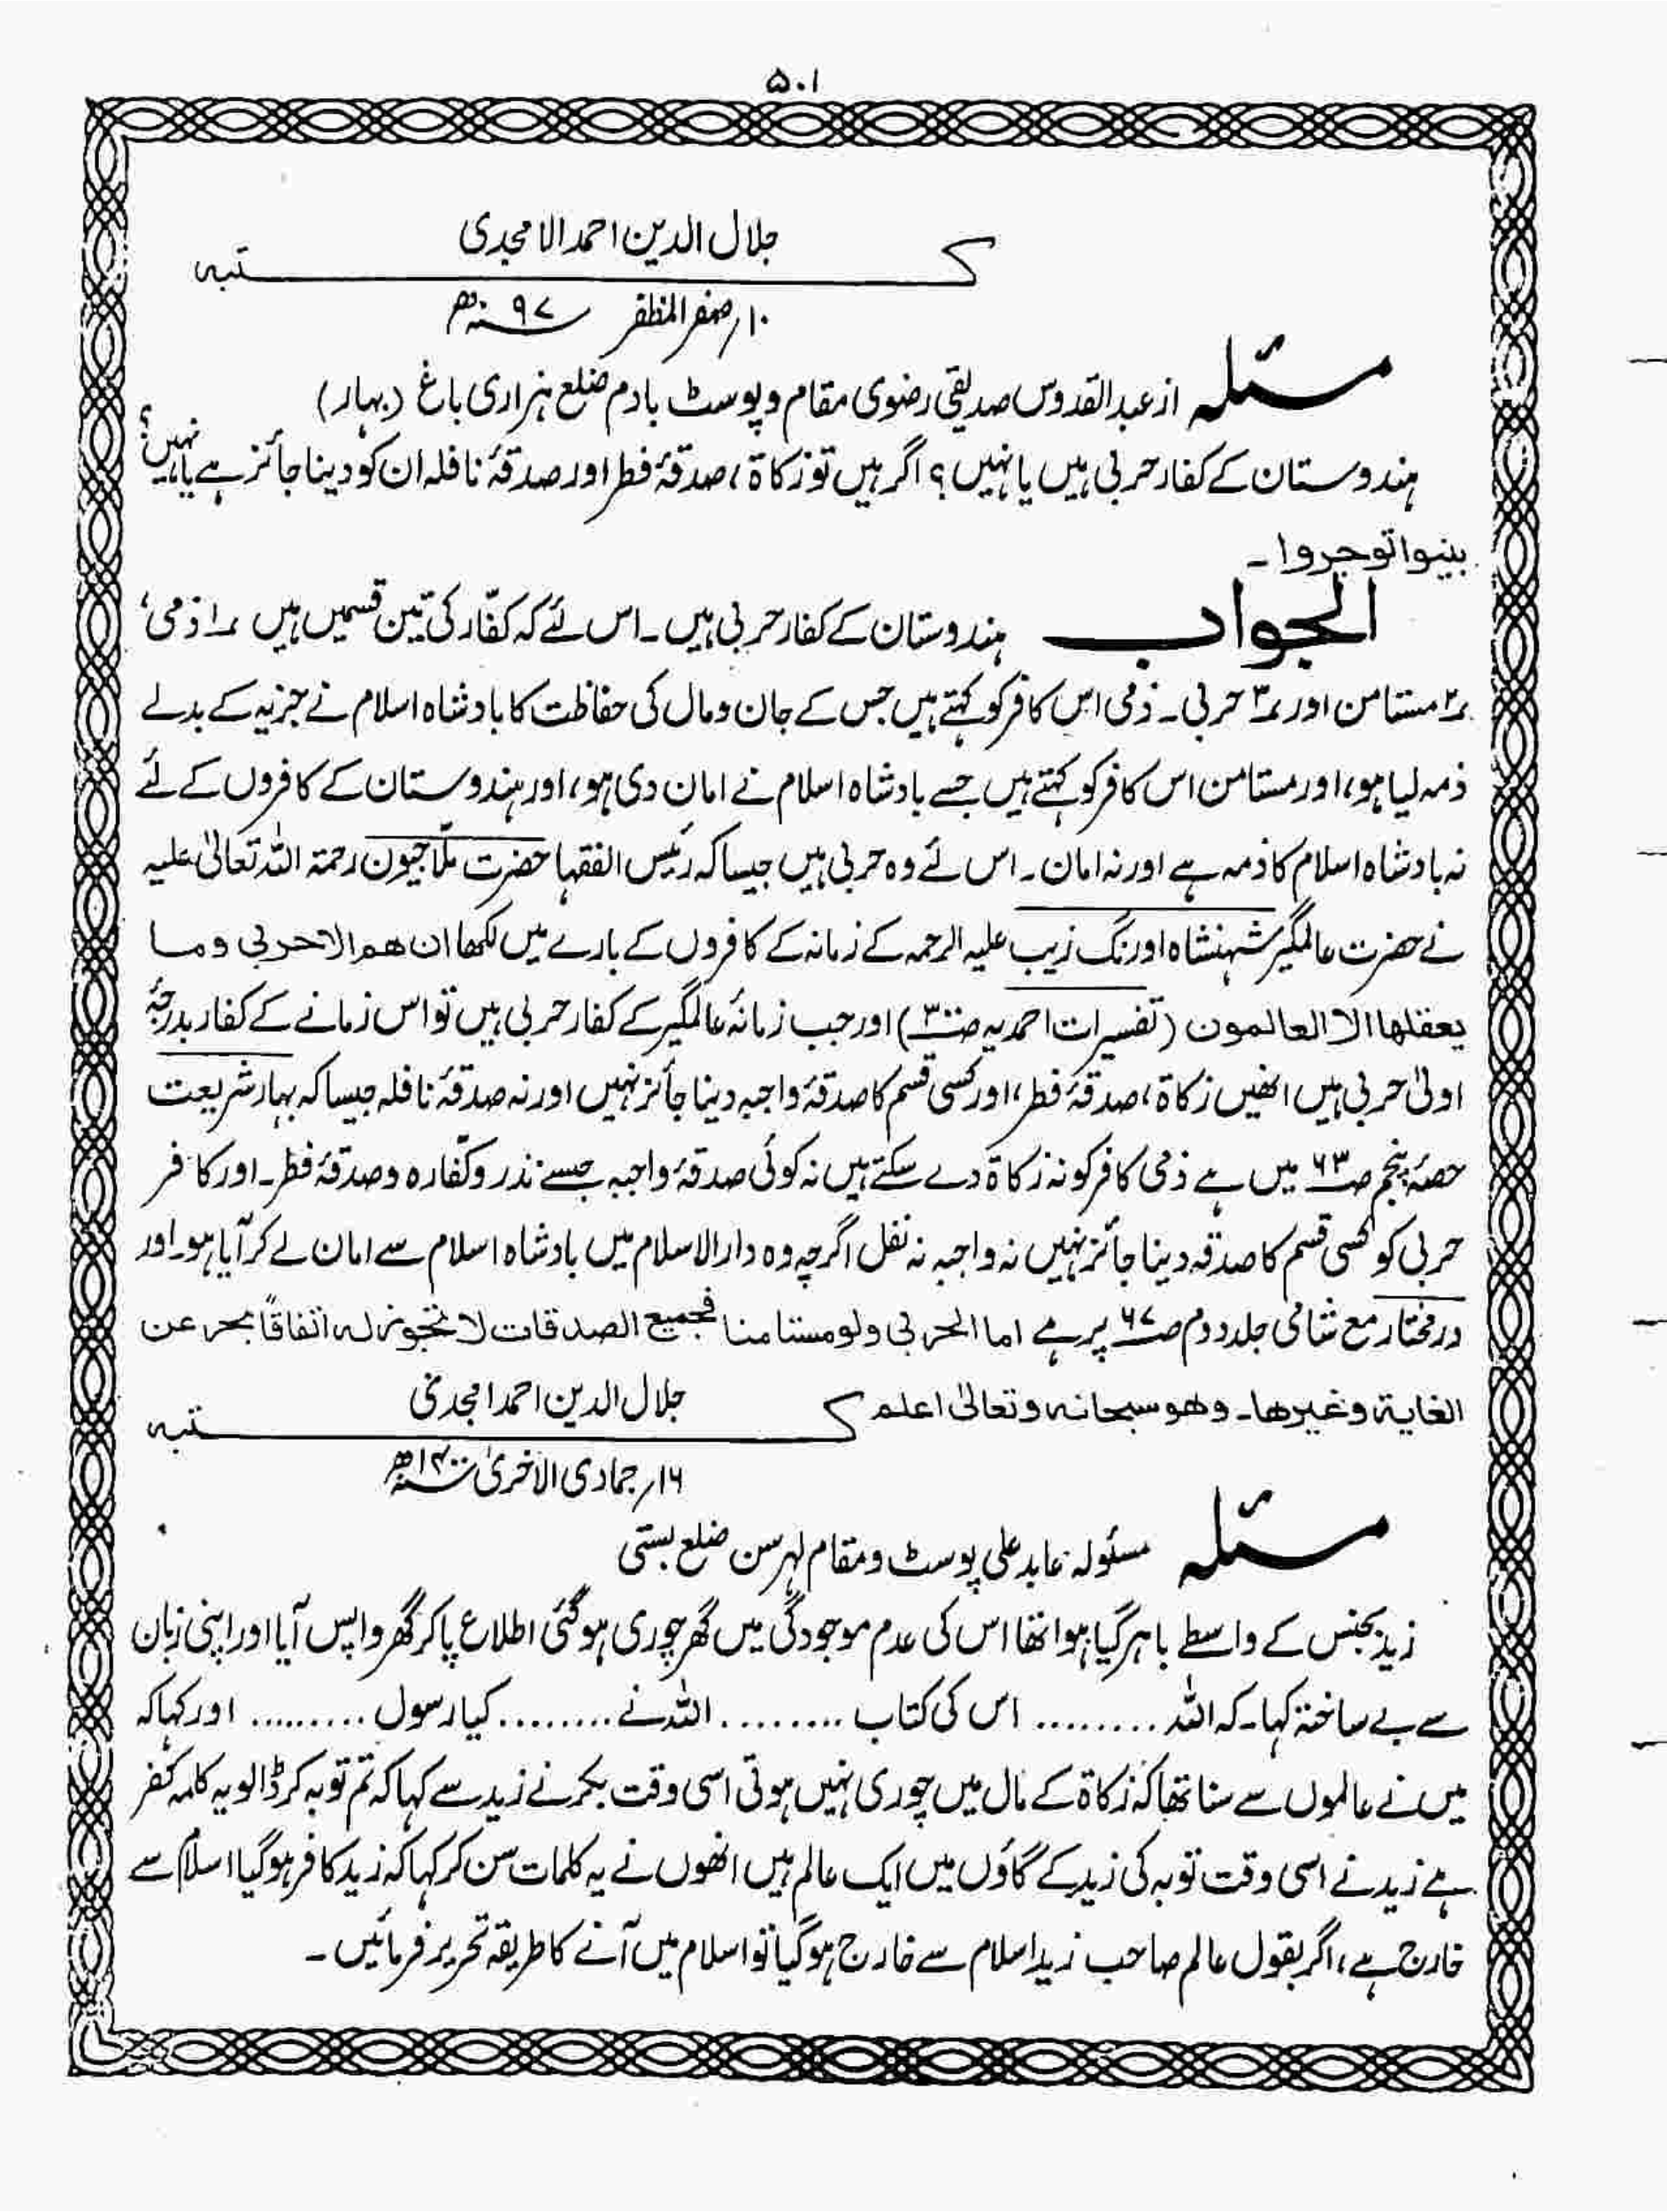 ۵۰۱
جلال الدین احمد الامجدی
کتبہ
۱۰؍صفر المظفر ۹۷ھ
مسئلہ از عبدالقدوس صدیقی رضوی مقام و پوسٹ بادم ضلع ہزاری باغ (بہار)
ہندوستان کے کفار حربی ہیں یا نہیں؟ اگر ہیں تو زکاۃ، صدقۂ فطر اور صدقۂ نافلہ ان کو دینا جائز ہے یا نہیں؟
بینوا توجروا۔
الجواب ہندوستان کے کفار حربی ہیں۔ اس لئے کہ کفّار کی تین قسمیں ہیں ۱ ذمی،
۲ مستامن اور ۳ حربی۔ ذمی اس کافر کو کہتے ہیں جس کے جان و مال کی حفاظت کا بادشاہ اسلام نے جزیہ کے بدلے
ذمہ لیا ہو، اور مستامن اس کافر کو کہتے ہیں جسے بادشاہ اسلام نے امان دی ہو، اور ہندوستان کے کافروں کے لئے
نہ بادشاہ اسلام کا ذمہ ہے اور نہ امان۔ اس لئے وہ حربی ہیں جیسا کہ رئیس الفقہا حضرت ملّا جیون رحمۃ اللہ تعالیٰ علیہ
نے حضرت عالمگیر شہنشاہ اورنگ زیب علیہ الرحمہ کے زمانہ کے کافروں کے بارے میں لکھا ان ھم الا حربی وما
یعقلھا الا العالمون (تفسیرات احمدیہ ص۳۰۰) اور جب زمانۂ عالمگیر کے کفار حربی ہیں تو اس زمانے کے کفار بدرجۂ
اولیٰ حربی ہیں انھیں زکاۃ، صدقۂ فطر، اور کسی قسم کا صدقۂ واجبہ دینا جائز نہیں اور نہ صدقۂ نافلہ جیسا کہ بہار شریعت
حصۂ پنجم ص۶۳ میں ہے ذمی کافر کو نہ زکاۃ دے سکتے ہیں نہ کوئی صدقۂ واجبہ جیسے نذر و کفّارہ و صدقۂ فطر۔ اور کافر
حربی کو کسی قسم کا صدقہ دینا جائز نہیں نہ واجبہ نہ نفل اگرچہ وہ دارالاسلام میں بادشاہ اسلام سے امان لے کر آیا ہو۔ اور
درمختار مع شامی جلد دوم ص۶۷ پر ہے اما الحربی ولو مستامنا فجمیع الصدقات لا تجوز لہ اتفاقاً بحر عن
الغایۃ وغیرھا۔ وھو سبحانہ وتعالیٰ اعلم جلال الدین احمد امجدی
کتبہ
۱۶؍جمادی الاخریٰ ۱۴۰۰ھ
مسئلہ مسئولہ عابد علی پوسٹ و مقام لہرسن ضلع بستی
زید بجنس کے واسطے باہر گیا ہوا تھا اس کی عدم موجودگی میں گھر چوری ہوگئی اطلاع پاکر گھر واپس آیا اور اپنی زبان
سے بے ساختہ کہا۔ کہ اللہ ......... اس کی کتاب ......... اللہ نے ......... کیا رسول ......... اور کہا کہ
میں نے عالموں سے سنا تھا کہ زکاۃ کے مال میں چوری نہیں ہوتی اسی وقت بکر نے زید سے کہا کہ تم توبہ کر ڈالو یہ کلمہ کفر
ہے زید نے اسی وقت توبہ کی زید کے گاؤں میں ایک عالم ہیں انھوں نے یہ کلمات سن کر کہا کہ زید کافر ہوگیا اسلام سے
خارج ہے، اگر بقول عالم صاحب زید اسلام سے خارج ہوگیا تو اسلام میں آنے کا طریقہ تحریر فرمائیں۔